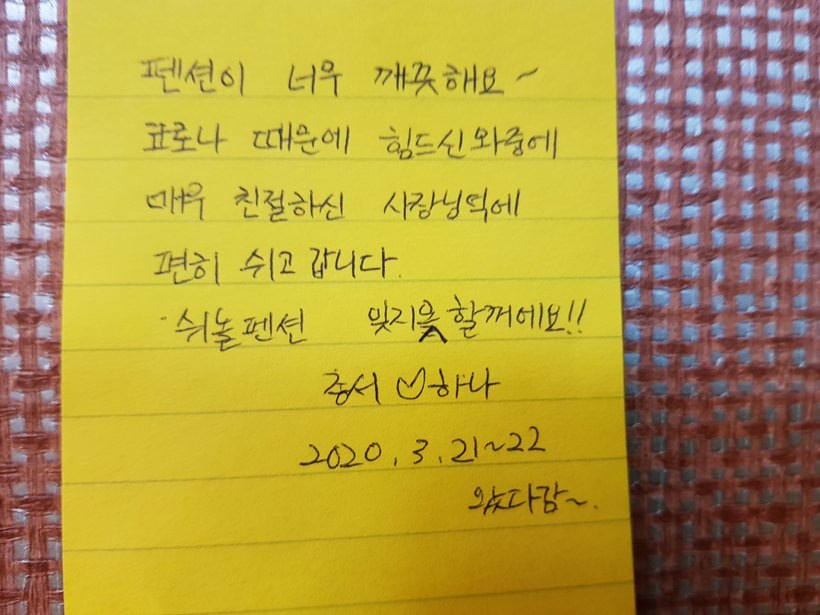 펜션이 너무 깨끗해요~
코로나 때문에 힘드신 와중에
매우 친절하신 사장님덕에
편히 쉬고 갑니다.
쉬놀펜션 잊지못할꺼에요!!
종서♡하나
2020.3.21~22
왔다감~.